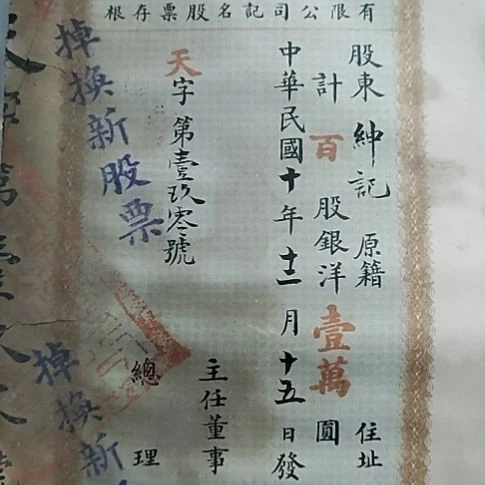 有限公司記名股票存根
股東 紳記 原籍 住址
計百股銀洋壹萬圓
中華民國十年十二月十五日發
主任董事
天字第壹玖零號
總理
掉換新股票
掉換新